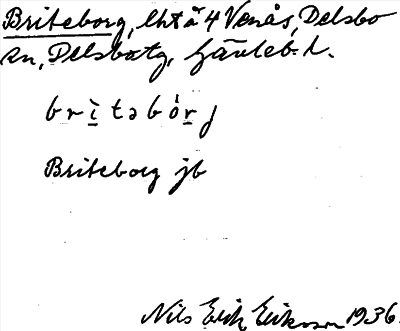 Briteborg, lht å 4 Venås, Delsbo
sn, Delsbotg, Gävleb. l.
britəbórj
Briteborg jb
Nils Erik Erikson 1936.